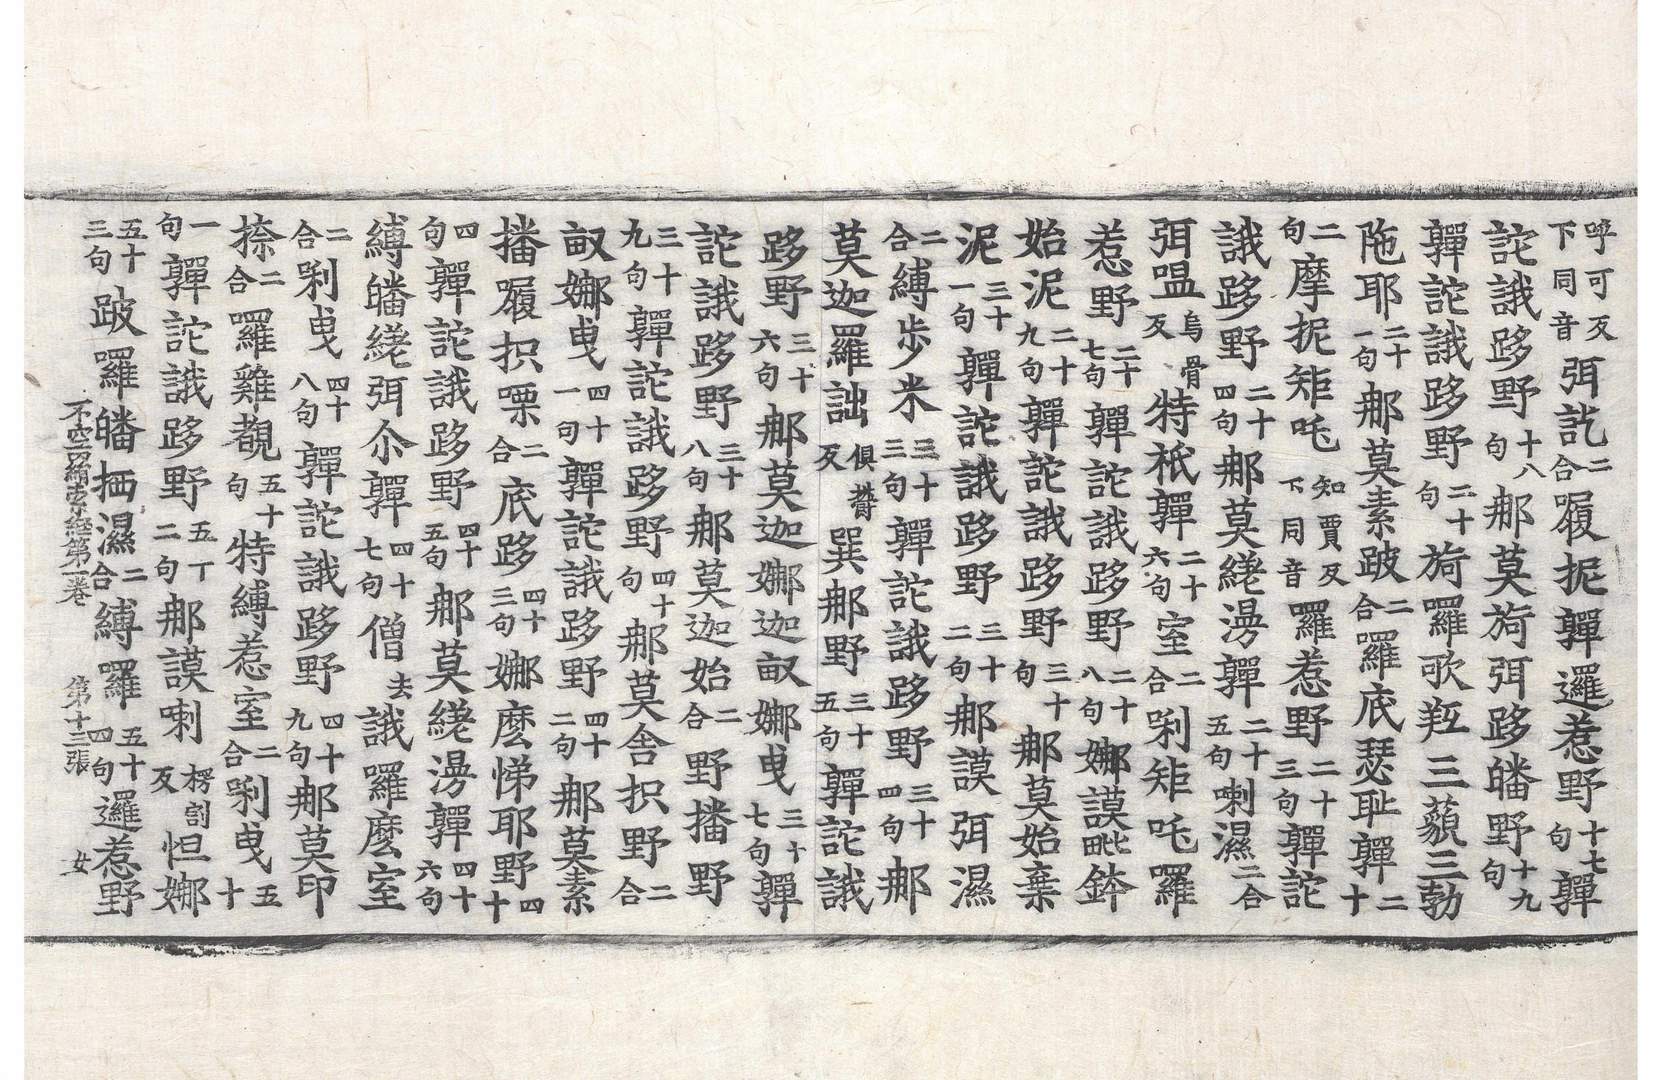 呼可反下同音弭訖二合履抳嚲邏惹野十七句嚲
詑誐跢野十八句那莫旖弭跢皤野十九句
嚲詑誐跢野二十句旖羅歌羝三藐三勃
陁耶二十一句那莫素跛二合囉底瑟耻嚲二十
二句摩抳矩吒知賈反下同音羅惹野二十三句嚲詑
誐跢野二十四句那莫繾澷嚲二十五句喇濕二合
弭嗢烏骨反特祇嚲二十六句室二合唎矩吒羅
惹野二十七句嚲詑誐跢野二十八句娜謨毗鉢
始泥二十九句嚲詑誐跢野三十句那莫始棄
泥三十一句嚲詑誐跢野三十二句那謨弭濕
二合縛步米三十三句嚲詑誐跢野三十四句那
莫迦羅詘俱欝反巽那野三十五句嚲詑誐
跢野三十六句那莫迦娜迦畝娜曳三十七句嚲
詑誐跢野三十八句那莫迦始二合野播野
三十九句嚲詑誐跢野四十句那莫舍抧野二合
畝娜曳四十一句嚲詑誐跢野四十二句那莫素
播履抧㗚二合底跢四十三句娜麼悌耶野四十
四句嚲詑誐跢野四十五句那莫繾澷嚲四十六句
縛皤繾弭尒嚲四十七句僧去誐羅麼室
二合唎曳四十八句嚲詑誐跢野四十九句那莫印
捺二合囉雞覩五十句特縛惹室二合唎曳五十
一句嚲詑誐跢野五十二句那謨喇楞割反怛娜
五十三句跛囉皤䄧濕二合縛囉五十四句邏惹野
不空羂索經第一卷 第十三張 女